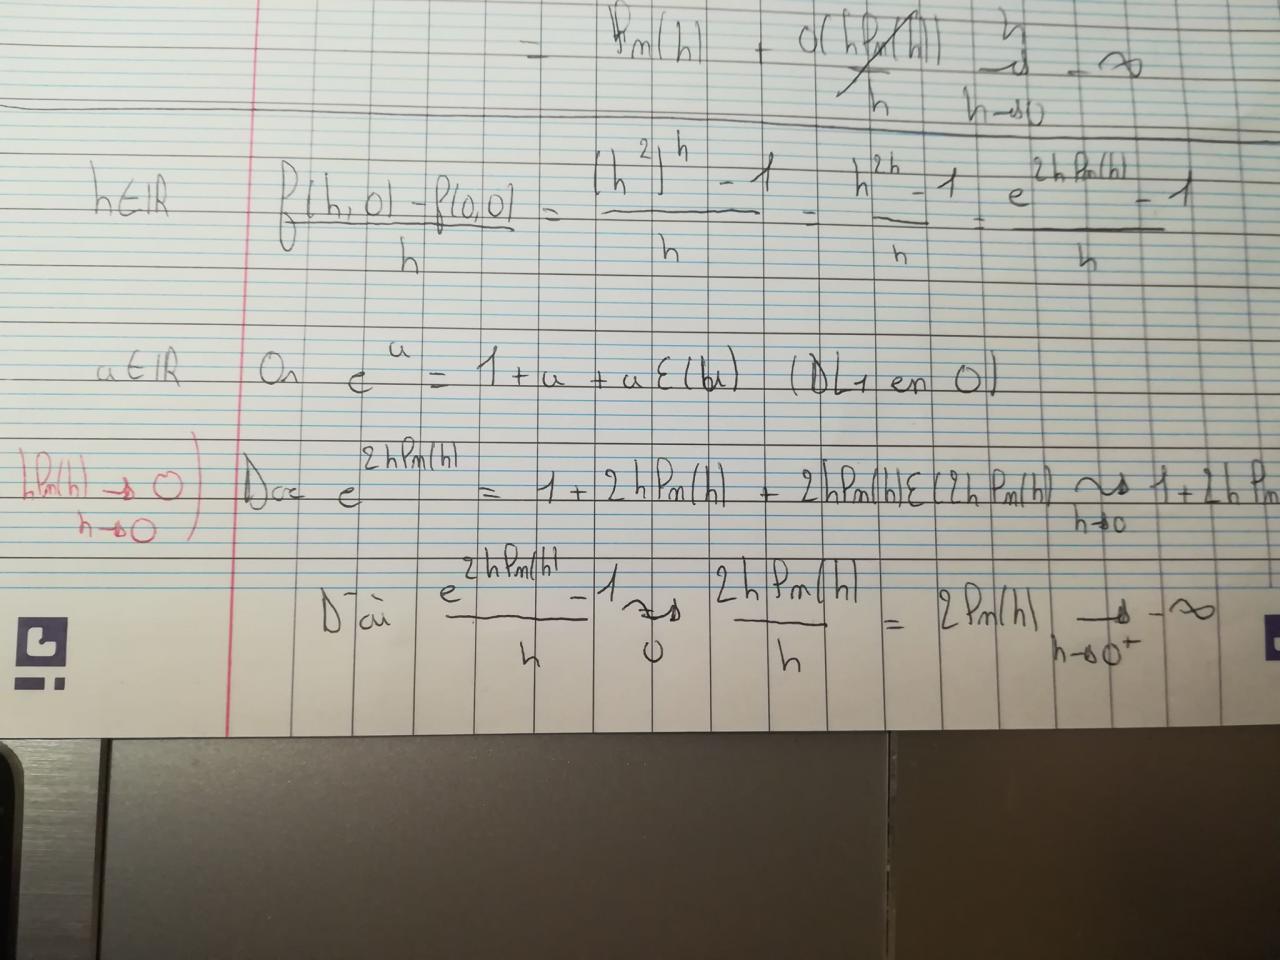 = ln(h) + o(h ln(h))/h → -∞ h→0
h∈ℝ (f(h,0) - f(0,0))/h = ((h²)^h - 1)/h = (h^{2h} - 1)/h = (e^{2h ln(h)} - 1)/h
u∈ℝ On e^u = 1 + u + u ε(u) (DL₁ en 0)
h ln(h) → 0 h→0) Donc e^{2h ln(h)} = 1 + 2h ln(h) + 2h ln(h) ε(2h ln(h) ~ h→0 1 + 2h ln
D'où (e^{2h ln(h)} - 1)/h ~ 0 2h ln(h)/h = 2 ln(h) → h→0⁺ -∞